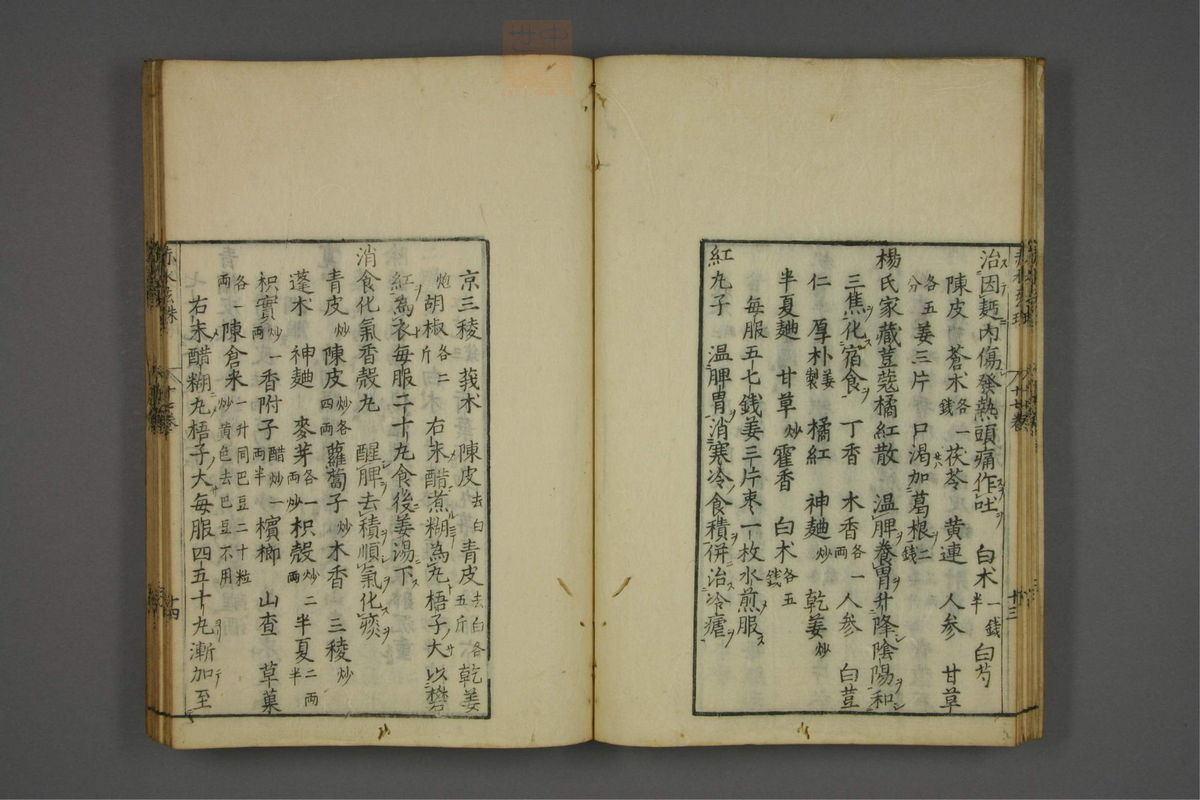 治因麪內傷發熱頭痛作吐 白朮一錢半白芍
陳皮 蒼朮各一錢茯苓 黄連 人參 甘草
各五分姜三片 口渴加葛根二錢
楊氏家藏荳蔻橘紅散 溫脾養胃升降陰陽和
三焦化宿食 丁香 木香各一兩人參 白荳
仁 厚朴姜製 橘紅 神麯炒 乾姜炒
半夏麯 甘草炒 霍香 白朮各五錢
每服五七錢姜三片枣一枚水煎服
紅丸子 溫脾胃消寒冷食積併治冷瘧
京三稜 莪朮 陳皮去白青皮去白各五斤乾姜
炮胡椒各二斤 右末醋煮糊為丸梧子大以礬
紅為衣每服二十丸食後姜湯下
消食化氣香殼丸 醒脾去積順氣化痰
青皮炒 陳皮炒各四兩蘿蔔子炒木香 三稜炒
蓬朮 神麯 麥芽各一兩炒枳殼炒二兩半夏二兩半
枳實炒一兩香附子醋炒一兩半檳榔 山查 草菓
各一兩陳倉米一升同巴豆二十粒炒黄色去巴豆不用
右末醋糊丸梧子大每服四五十丸漸加至
赤水玄珠 十三
十四